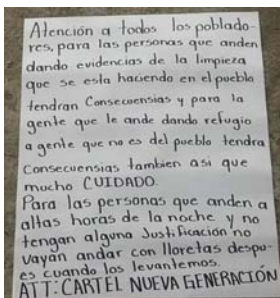 Atención a todos los poblado-
res, para las personas que anden
dando evidencias de la limpieza
que se esta haciendo en el pueblo
tendran Consecuensias y para la
gente que le ande dando refugio
a gente que no es del pueblo tendra
Consecuensias tambien asi que
mucho CUIDADO.
Para las personas que anden a
altas horas de la noche y no
tengan alguna Justificación no
vayan andar con lloretas despu-
es cuando los levantemos.
ATT: CARTEL NUEVA GENERACIÓN